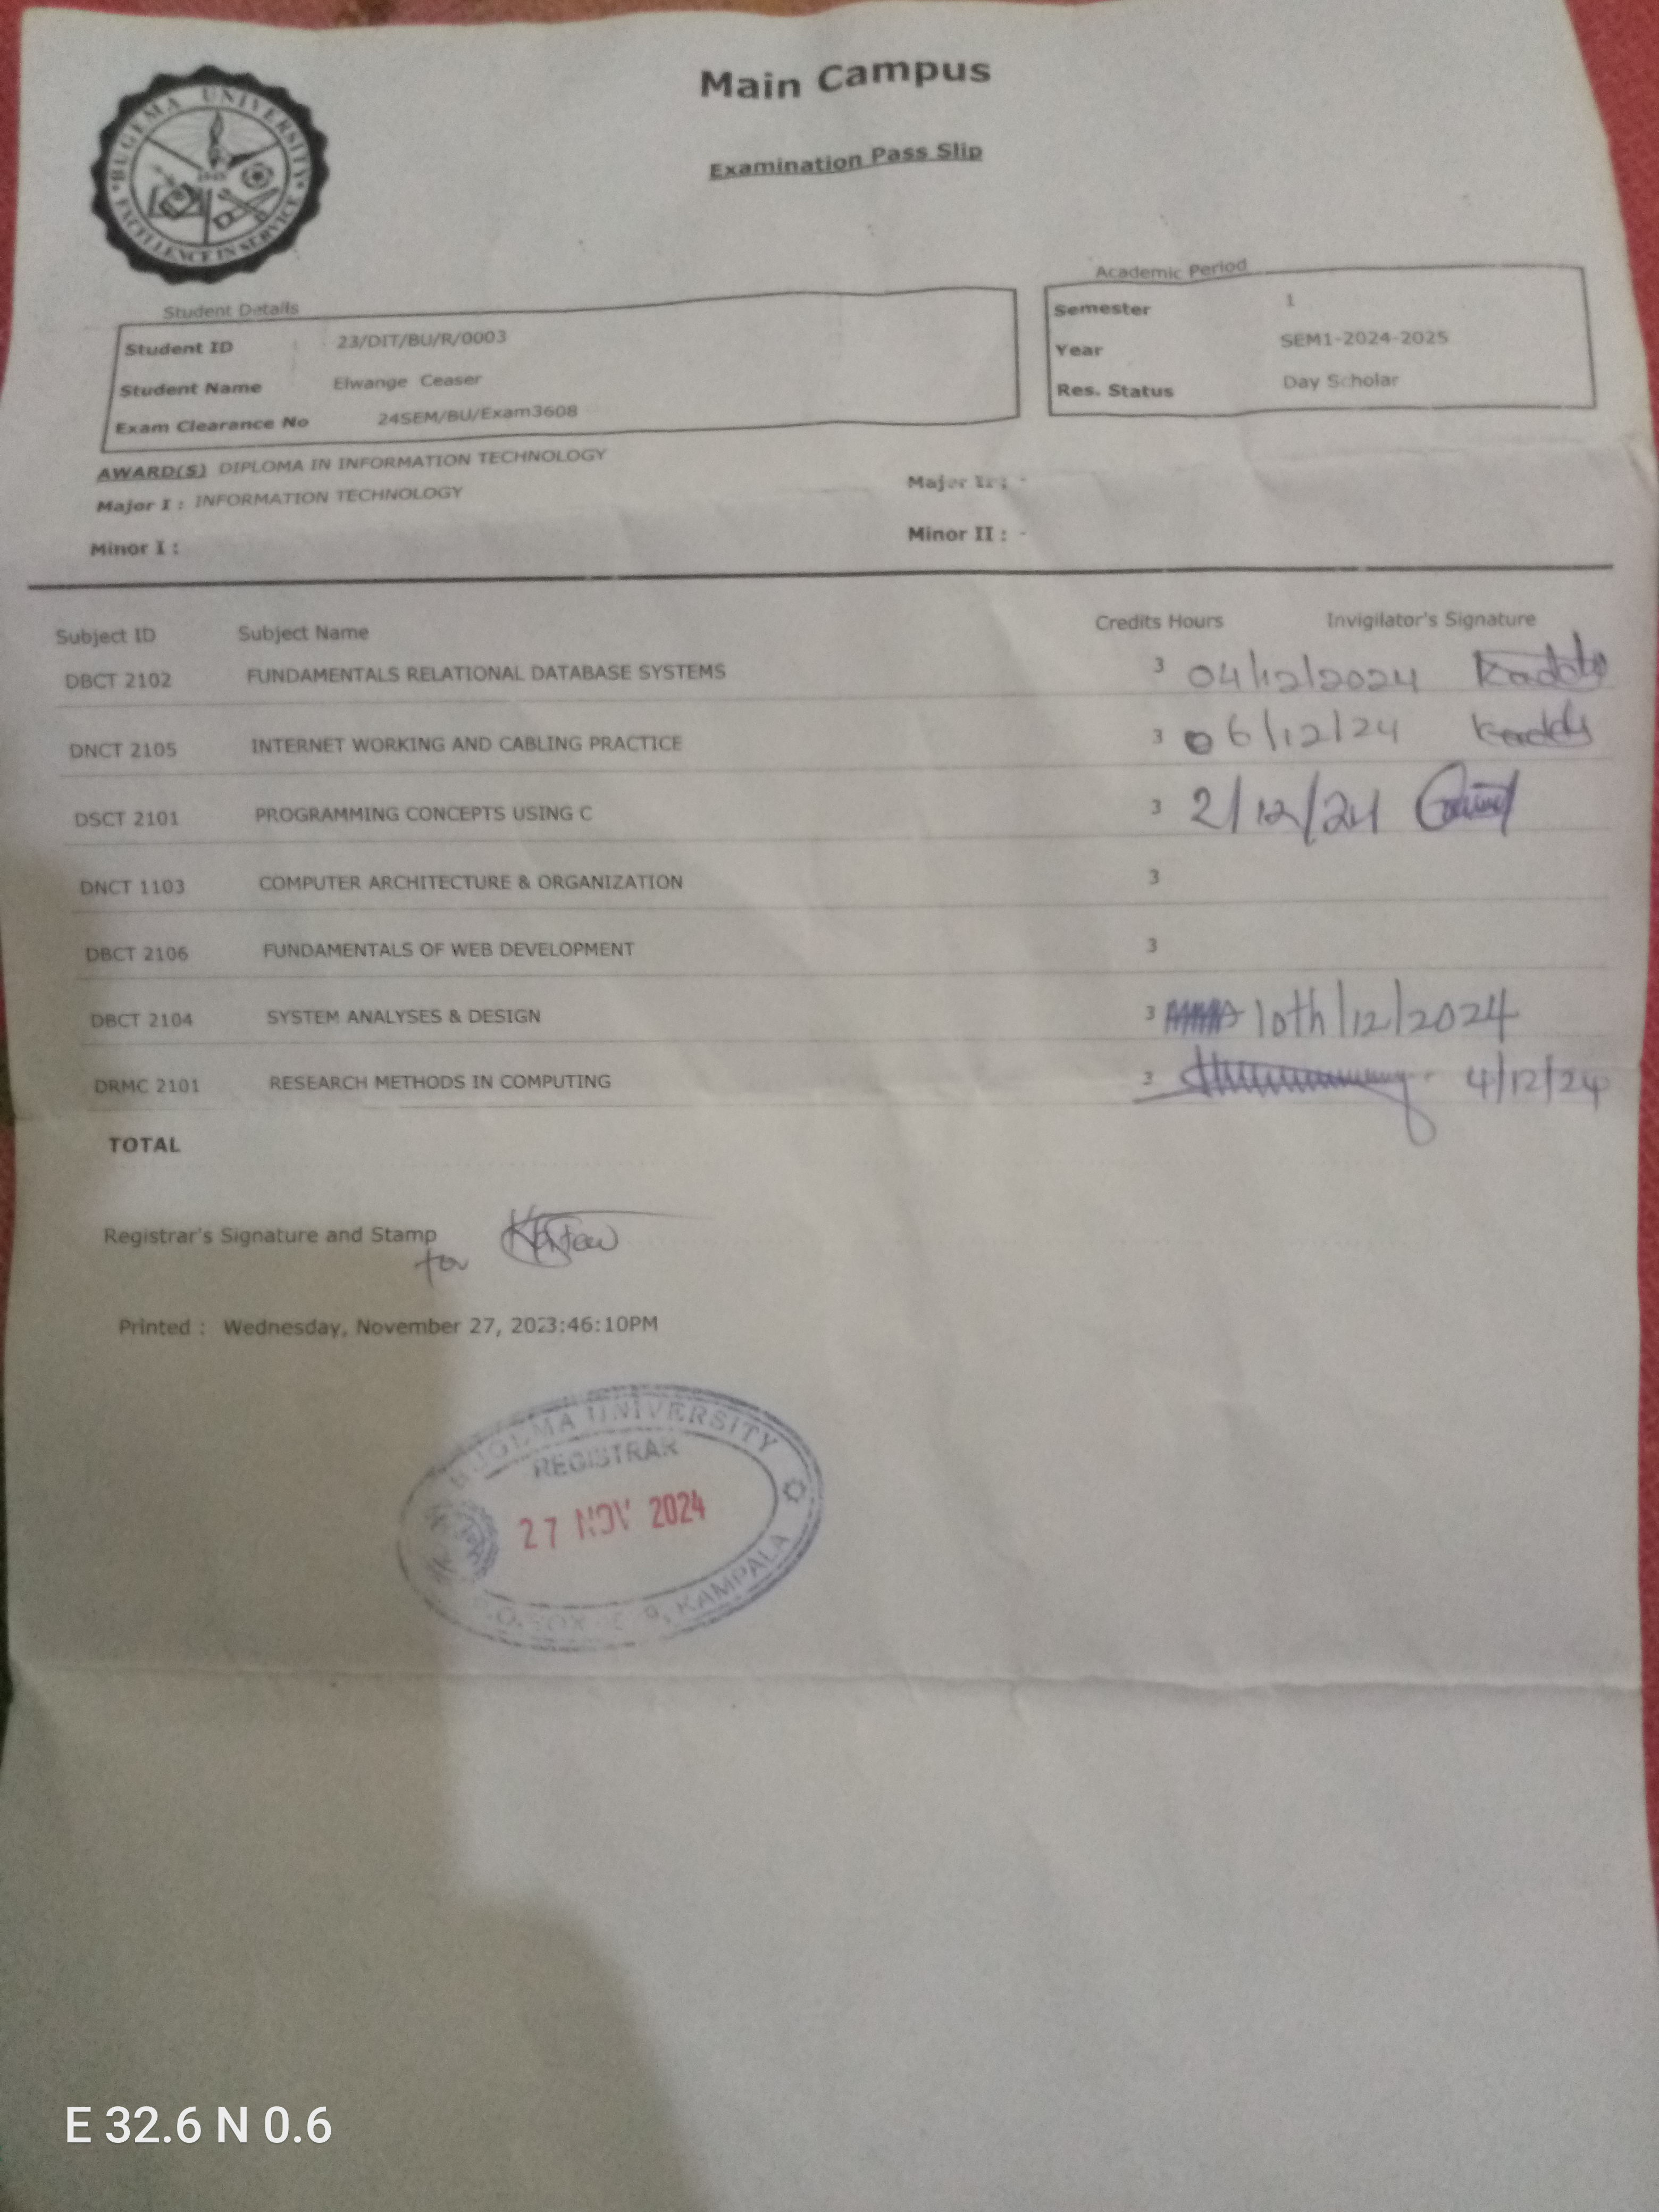 Main Campus
Examination Pass Slip
BUGEMA UNIVERSITY
EXCELLENCE IN SERVICE
Student Details
Student ID 23/DIT/BU/R/0003
Student Name Elwange Ceaser
Exam Clearance No 24SEM/BU/Exam3608
Academic Period
Semester 1
Year SEM1-2024-2025
Res. Status Day Scholar
AWARD(S) DIPLOMA IN INFORMATION TECHNOLOGY
Major I : INFORMATION TECHNOLOGY Major II : -
Minor I : Minor II : -
Subject ID Subject Name Credits Hours Invigilator's Signature
DBCT 2102 FUNDAMENTALS RELATIONAL DATABASE SYSTEMS 3 04/12/2024
DNCT 2105 INTERNET WORKING AND CABLING PRACTICE 3 06/12/24
DSCT 2101 PROGRAMMING CONCEPTS USING C 3 2/12/24
DNCT 1103 COMPUTER ARCHITECTURE & ORGANIZATION 3
DBCT 2106 FUNDAMENTALS OF WEB DEVELOPMENT 3
DBCT 2104 SYSTEM ANALYSES & DESIGN 3 10th/12/2024
DRMC 2101 RESEARCH METHODS IN COMPUTING 3 4/12/24
TOTAL
Registrar's Signature and Stamp
for
Printed : Wednesday, November 27, 2023:46:10PM
BUGEMA UNIVERSITY
REGISTRAR
27 NOV 2024
KAMPALA
E 32.6 N 0.6